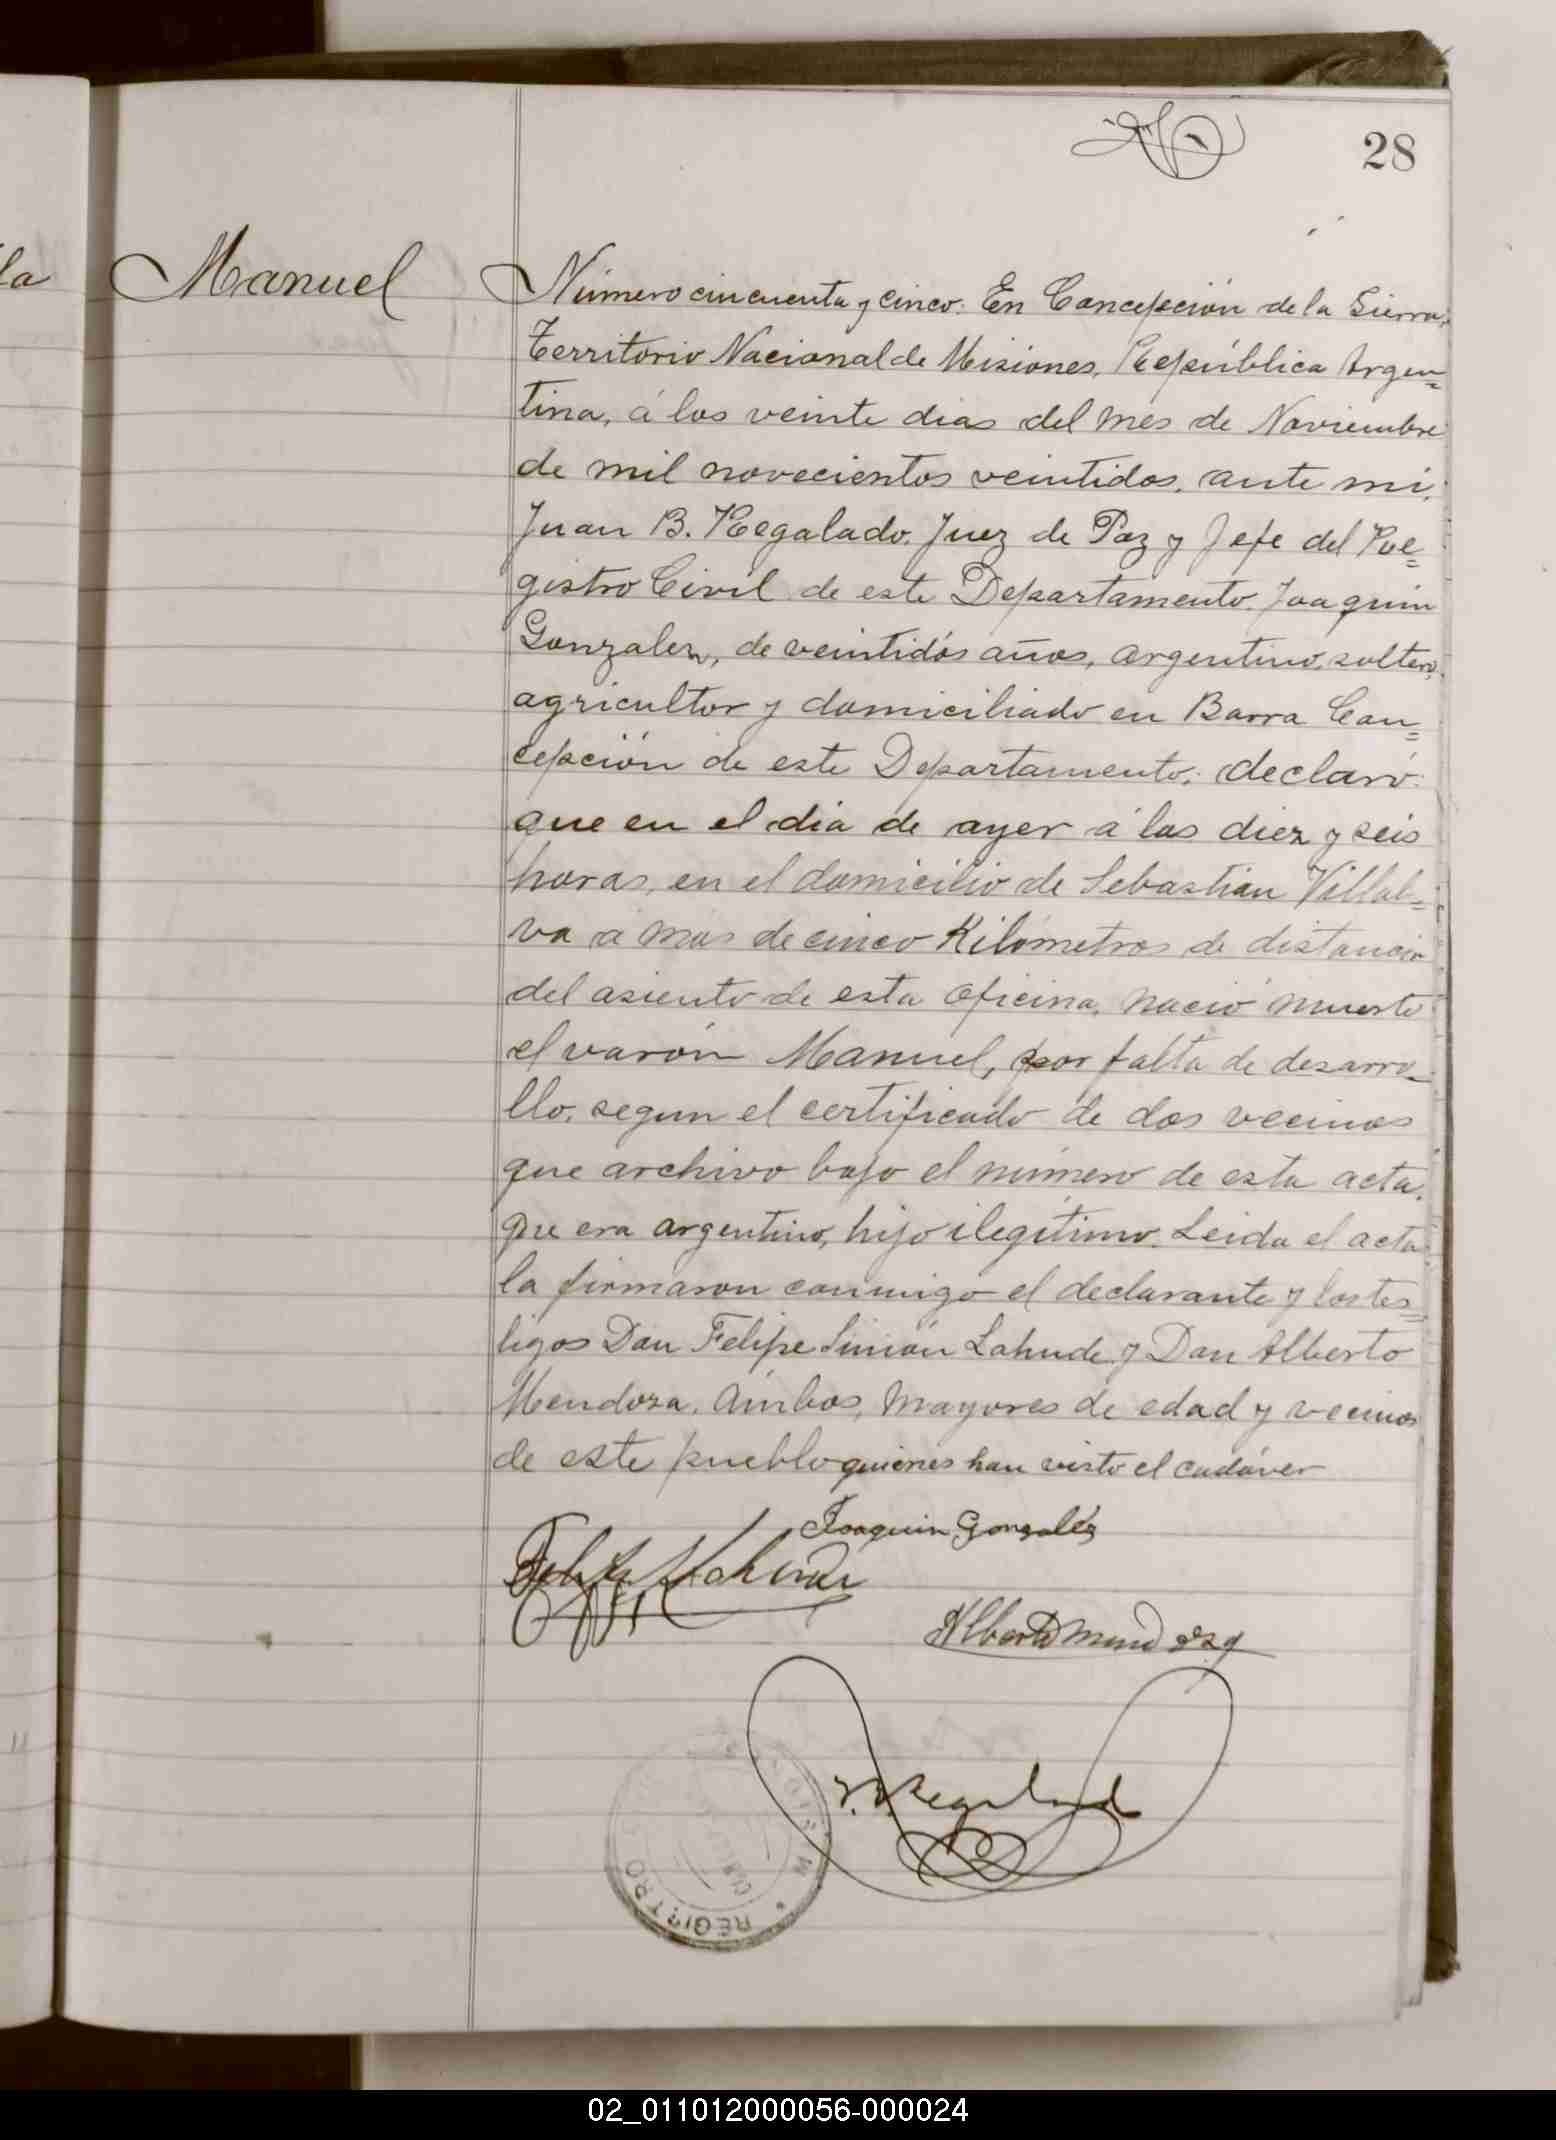 28
la
Manuel
Número cincuenta y cinco. En Concepción de la Sierra,
Territorio Nacional de Misiones, República Argen=
tina, á los veinte dias del mes de Noviembre
de mil novecientos veintidos, ante mi,
Juan B. Regalado, Juez de Paz y Jefe del Re=
gistro Civil de este Departamento, Joaquin
Gonzalez, de veintidós años, argentino, soltero,
agricultor y domiciliado en Barra Con=
cepción de este Departamento, declaró:
que en el dia de ayer á las diez y seis
horas, en el domicilio de Sebastián Villal=
va á mas de cinco Kilómetros de distancia
del asiento de esta oficina, nació muerto
el varón Manuel, por falta de desarro-
llo, segun el certificado de dos vecinos
que archivo bajo el número de esta acta.
Que era argentino, hijo ilegítimo. Leida el acta
la firmaron conmigo el declarante y los tes=
tigos Don Felipe Simón Lahude y Don Alberto
Mendoza, ámbos, mayores de edad y vecinos
de este pueblo quienes han visto el cadáver
Joaquin Gonzaléz
Alberto Mendoza
J. B. Regalado
REGISTRO
MISIONES
02_011012000056-000024